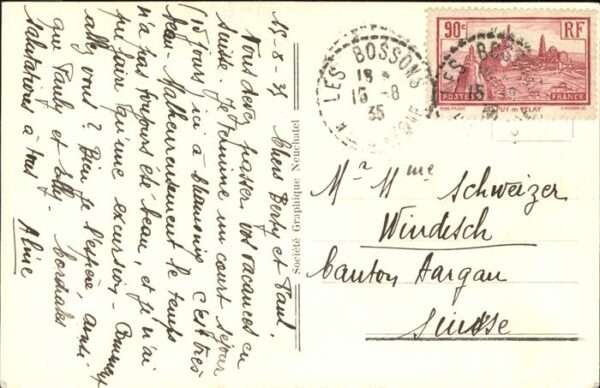 15-8-35
Chers Berty et Paul.
Vous devez passer vos vacances en
Suisse. Je termine un court séjour
(15 jours) ici à Chamonix. C'est très
beau. Malheureusement le temps
n'a pas toujours été beau, et je n'ai
pu faire qu'une excursion. Comment
allez vous? Bien je l'espère, ainsi
que Pauly et Lilly. Cordiales
salutations à tous
Aline
Société Graphique Neuchatel
LES BOSSONS
18
15-8
35
90c
RF
POSTES FRANCE
PUY EN VELAY
LES BOS
15
Mr Mme Schweizer
Windisch
Canton Aargau
Suisse